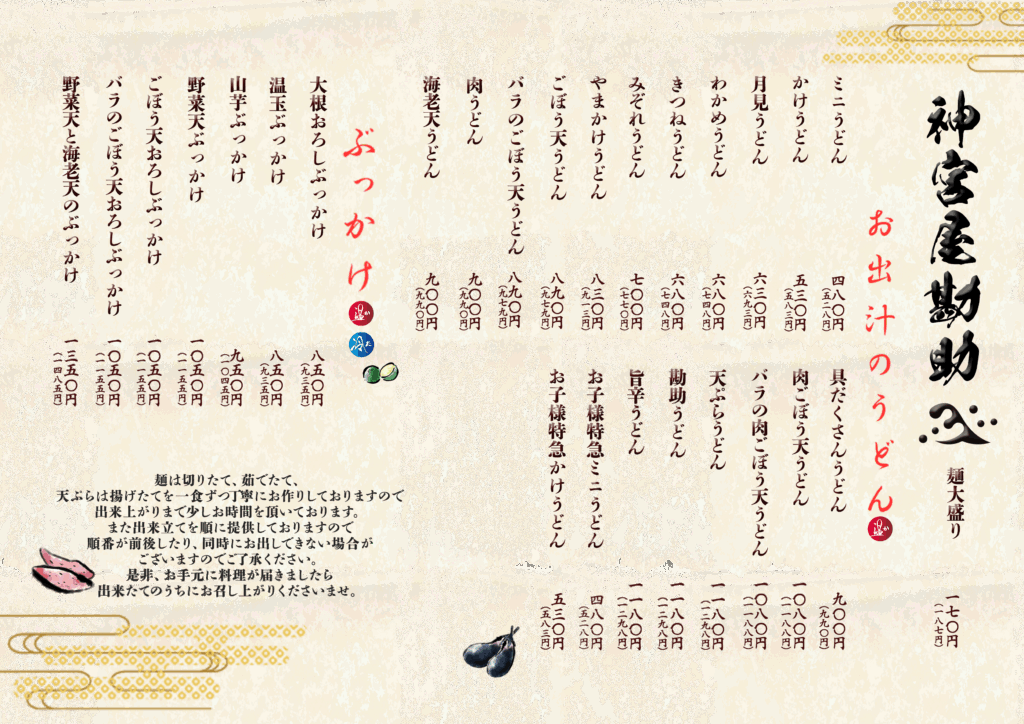 神宮屋勘助
麺大盛り 一七〇円（一八七円）
お出汁のうどん 温か
ミニうどん 四八〇円（五二八円）
かけうどん 五三〇円（五八三円）
月見うどん 六三〇円（六九三円）
わかめうどん 六八〇円（七四八円）
きつねうどん 六八〇円（七四八円）
みぞれうどん 七〇〇円（七七〇円）
やまかけうどん 八三〇円（九一三円）
ごぼう天うどん 八九〇円（九七九円）
バラのごぼう天うどん 八九〇円（九七九円）
肉うどん 九〇〇円（九九〇円）
海老天うどん 九〇〇円（九九〇円）
具だくさんうどん 九〇〇円（九九〇円）
肉ごぼう天うどん 一〇八〇円（一一八八円）
バラの肉ごぼう天うどん 一〇八〇円（一一八八円）
天ぷらうどん 一一八〇円（一二九八円）
勘助うどん 一一八〇円（一二九八円）
旨辛うどん 一一八〇円（一二九八円）
お子様特急ミニうどん 四八〇円（五二八円）
お子様特急かけうどん 五三〇円（五八三円）
ぶっかけ 温か 冷た
大根おろしぶっかけ 八五〇円（九三五円）
温玉ぶっかけ 八五〇円（九三五円）
山芋ぶっかけ 九五〇円（一〇四五円）
野菜天ぶっかけ 一〇五〇円（一一五五円）
ごぼう天おろしぶっかけ 一〇五〇円（一一五五円）
バラのごぼう天おろしぶっかけ 一〇五〇円（一一五五円）
野菜天と海老天のぶっかけ 一三五〇円（一四八五円）
麺は切りたて、茹でたて、
天ぷらは揚げたてを一食ずつ丁寧にお作りしておりますので
出来上がりまで少しお時間を頂いております。
また出来立てを順に提供しておりますので
順番が前後したり、同時にお出しできない場合が
ございますのでご了承ください。
是非、お手元に料理が届きましたら
出来たてのうちにお召し上がりくださいませ。